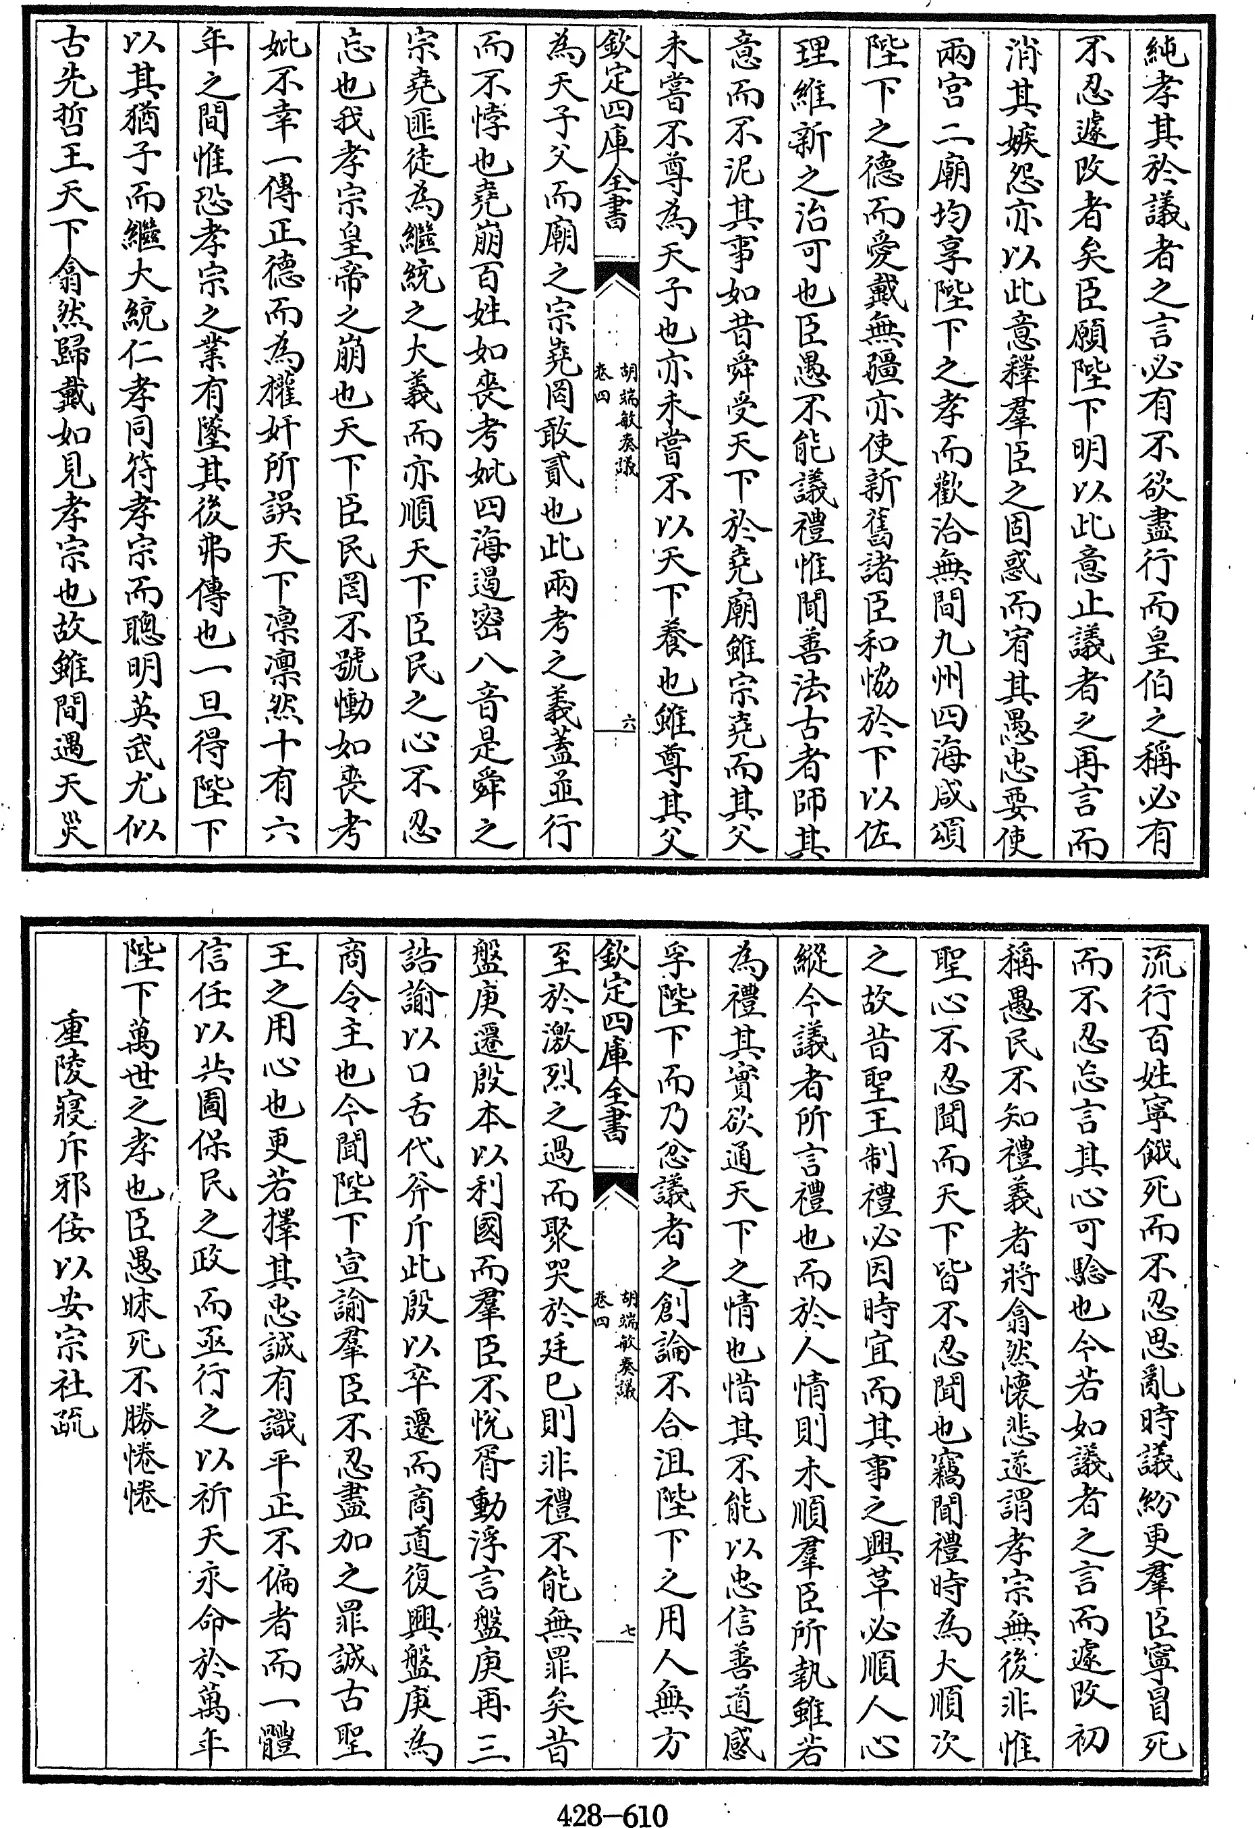 純孝其於議者之言必有不欲盡行而皇伯之稱必有
不忍遽改者矣臣願陛下明以此意止議者之再言而
消其嫉怨亦以此意釋羣臣之固惑而宥其愚忠要使
兩宮二廟均享陛下之孝而歡洽無間九州四海咸頌
陛下之德而愛戴無疆亦使新舊諸臣和恊於下以佐
理維新之治可也臣愚不能議禮惟聞善法古者師其
意而不泥其事如昔舜受天下於堯廟雖宗堯而其父
未嘗不尊為天子也亦未嘗不以天下養也雖尊其父
欽定四庫全書
胡端敏奏議
卷四
六
為天子父而廟之宗堯罔敢貳也此兩考之義蓋並行
而不悖也堯崩百姓如喪考妣四海遏密八音是舜之
宗堯匪徒為繼統之大義而亦順天下臣民之心不忍
忘也我孝宗皇帝之崩也天下臣民罔不號慟如喪考
妣不幸一傳正德而為權奸所誤天下凛凛然十有六
年之間惟恐孝宗之業有墜其後弗傳也一旦得陛下
以其猶子而繼大統仁孝同符孝宗而聰明英武尤似
古先哲王天下翕然歸戴如見孝宗也故雖間遇天災
流行百姓寧餓死而不忍思亂時議紛更羣臣寧冒死
而不忍忘言其心可驗也今若如議者之言而遽改初
稱愚民不知禮義者將翕然懷悲遂謂孝宗無後非惟
聖心不忍聞而天下皆不忍聞也竊聞禮時為大順次
之故昔聖王制禮必因時宜而其事之興革必順人心
縱今議者所言禮也而於人情則未順羣臣所執雖若
為禮其實欲通天下之情也惜其不能以忠信善道感
孚陛下而乃忿議者之創論不合沮陛下之用人無方
欽定四庫全書
胡端敏奏議
卷四
七
至於激烈之過而聚哭於廷已則非禮不能無罪矣昔
盤庚遷殷本以利國而羣臣不悅胥動浮言盤庚再三
誥諭以口舌代斧斤此殷以卒遷而商道復興盤庚為
商令主也今聞陛下宣諭羣臣不忍盡加之罪誠古聖
王之用心也更若擇其忠誠有識平正不偏者而一體
信任以共圖保民之政而亟行之以祈天永命於萬年
陛下萬世之孝也臣愚昧死不勝惓惓
重陵寢斥邪佞以安宗社疏
428-610